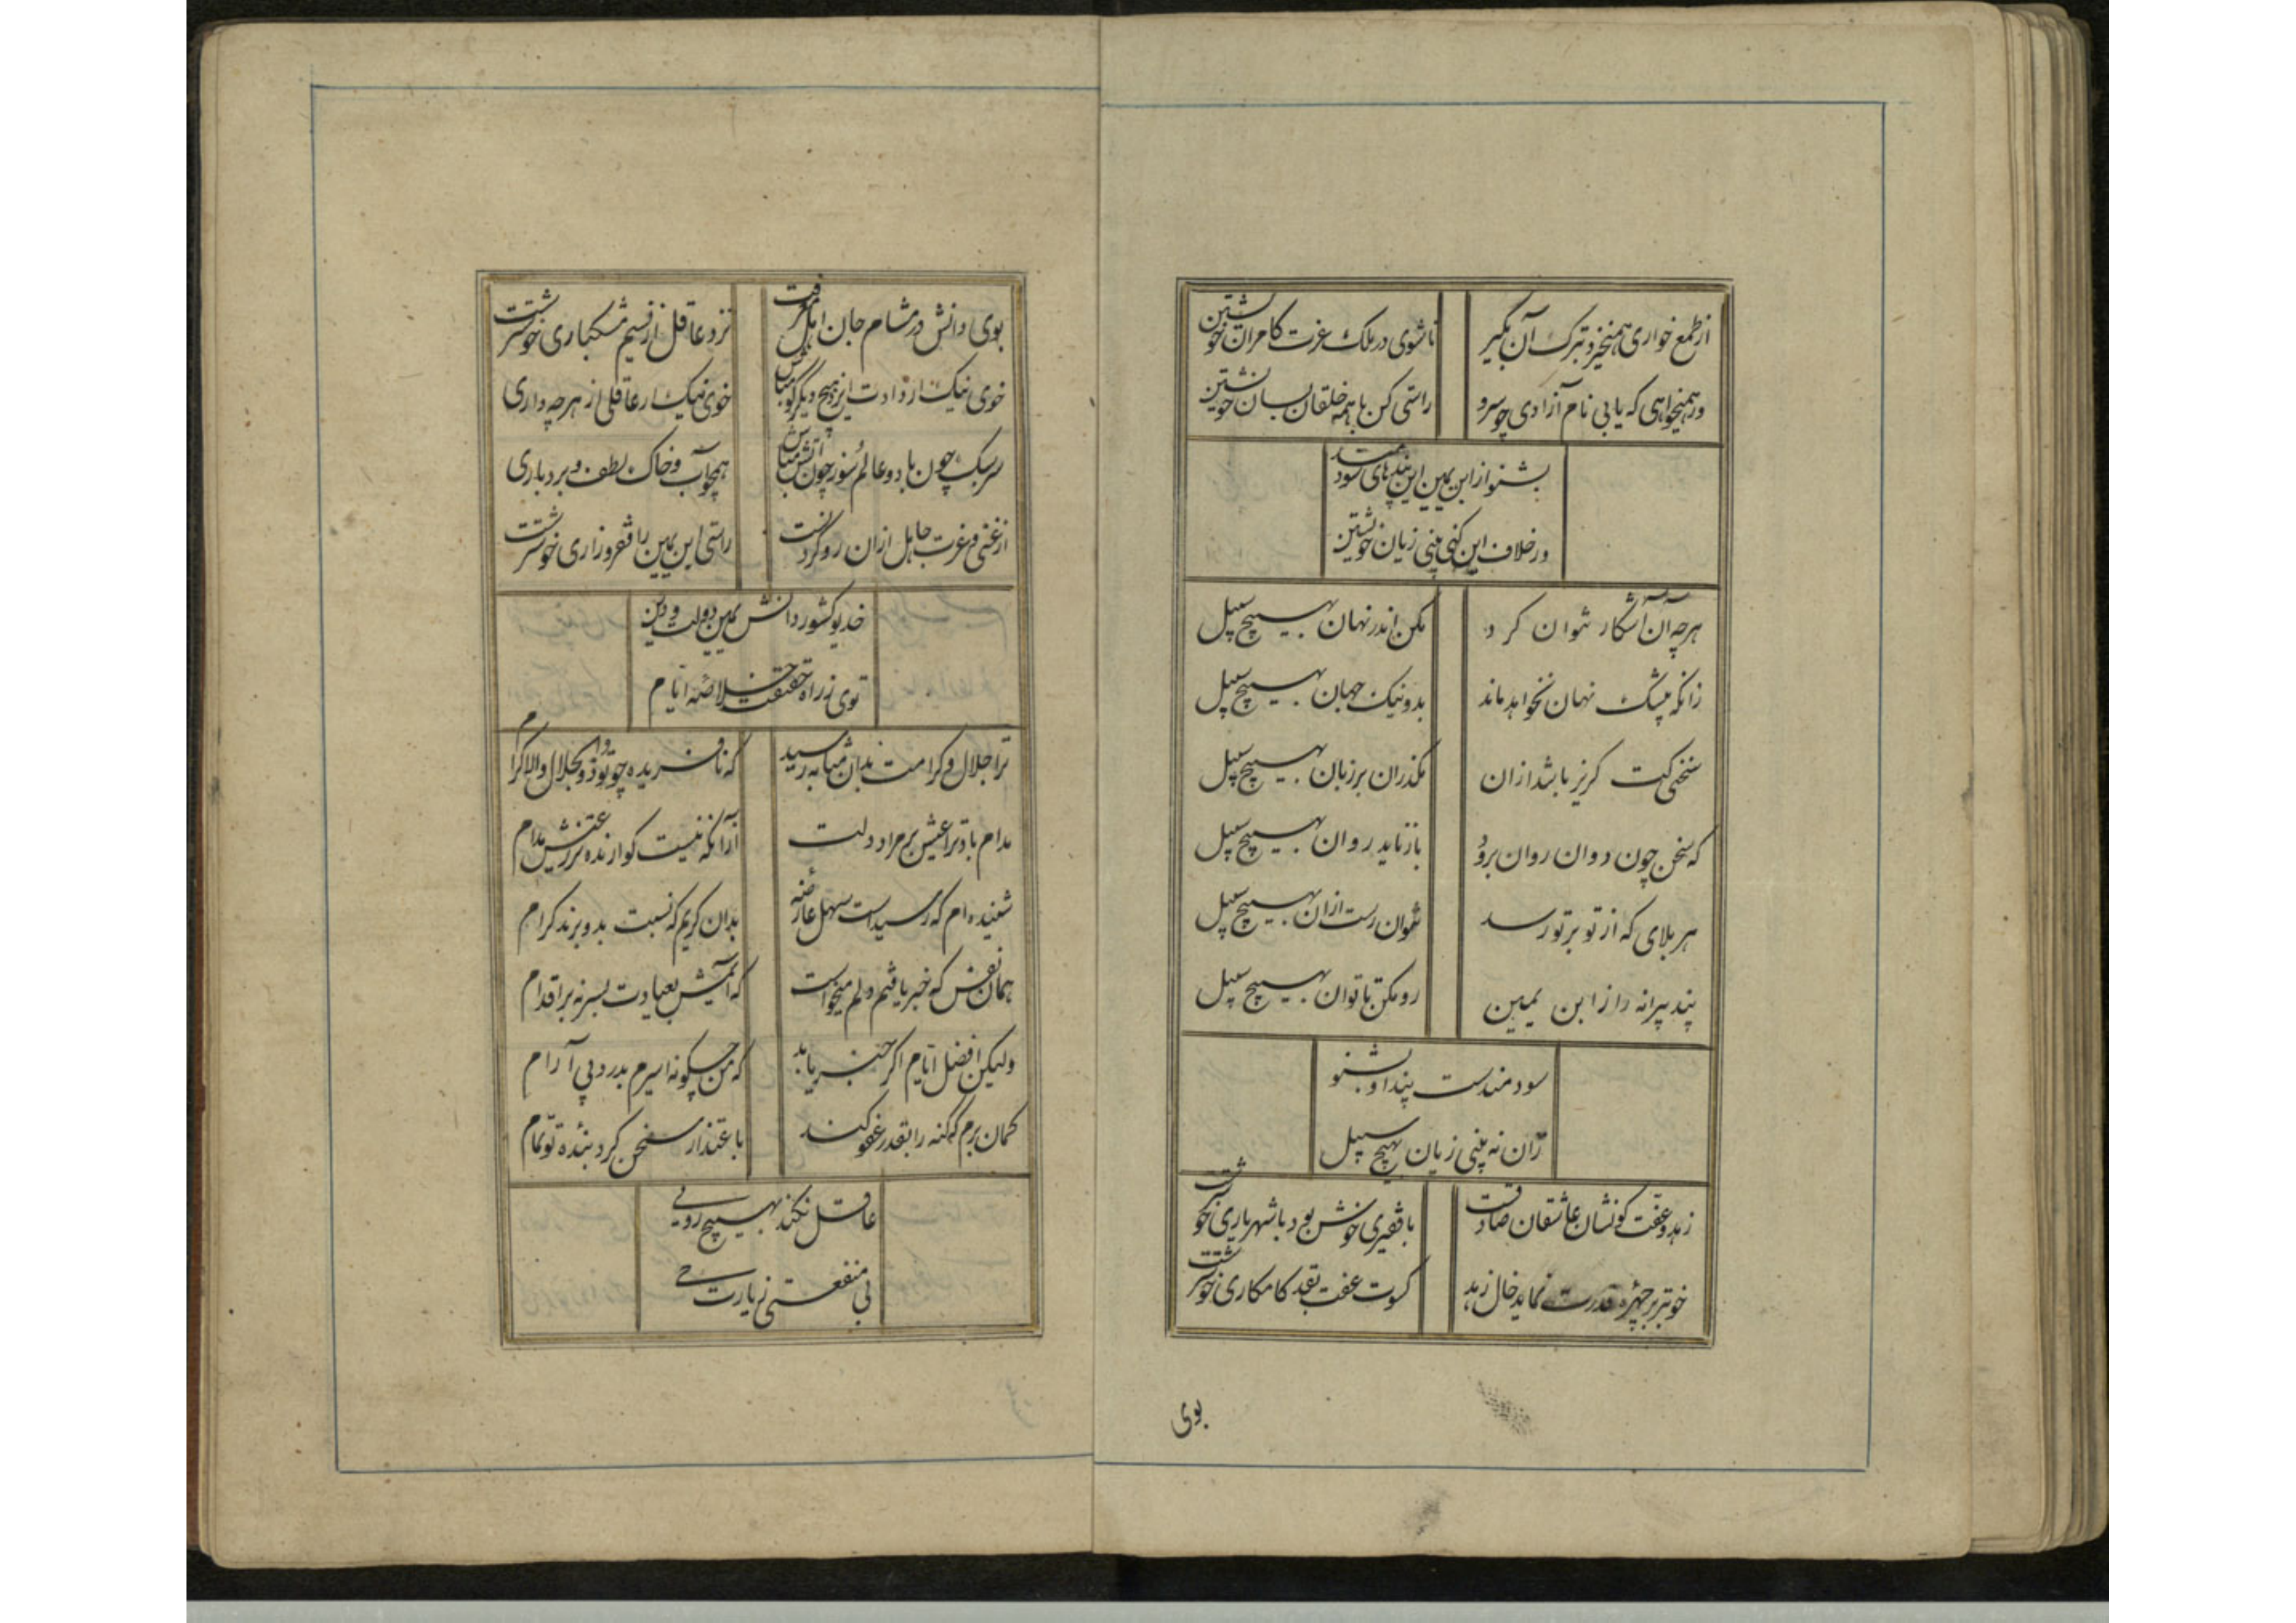 از طمع خواری همیخیزد بترک آن بگیر تا شوی در ملک عزت کامران خویشتن
ور همیخواهی که یابی نام آزادی چو سرو راستی کن با همه خلقان بسان خویشتن
بشنو از ابن یمین این پندهای سودمند
ور خلاف این کنی بینی زیان خویشتن
هرچه آن آشکار نتوان کرد مکن اندر نهان بهیچ سبیل
زانکه بیشک نهان نخواهد ماند بد و نیک جهان بهیچ سبیل
سخنی کت گریز باشد ازان مگذران بر زبان بهیچ سبیل
که سخن چون دوان روان برود باز ناید روان بهیچ سبیل
هر بلای که از تو بر تو رسد نتوان رست ازان بهیچ سبیل
پند پیرانه را ز ابن یمین رو مکن تا توان بهیچ سبیل
سودمندست پند او بشنو
زان نه بینی زیان بهیچ سبیل
زهد و عفت کو نشان عاشقان صادقست با فقیری خوش بود با شهریاری خوشترست
خوبتر بر چهره قدرت نماید خال زهد کسوت عفت بقد کامکاری خوشترست
بوی
بوی دانش در مشام جان اهل معرفت نزد عاقل از نسیم مشکباری خوشترست
خوی نیک ار دادت ایزد هیچ دیگر گو مباش خوی نیک ار عاقلی از هرچه داری
سر سبک چون باد و عالم سوز چون آتش مباش همچو آب و خاک لطف و بردباری
از غنی و عزت جاهل ازان رو گردانست راستی ابن یمین را فقر و زاری خوشترست
خدیو کشور دانش یمین دولت و دین
توی ز راه حقیقت خلاصه ایام
ترا جلال و کرامت بدان مثابه رسید که نافریده چو تو ذوالجلال والاکرام
مدام باد ترا عیش بر مراد دلت ازانکه نیست گوارنده تر ز عیش مدام
شنیده ام که رسیداست سهل عارضه بدان کریم که نسبت بدو برند کرام
همان نفس که خبر یافتم دلم میخواست که آیمش بعیادت بسر نه بر اقدام
ولیکن افضل ایام اگر خبر یابد که من چگونه اسیرم بدرد بی آرام
گمان برم که گنه را بقدر عفو کند باعتذار سخن کرد بنده تو تمام
عاقل نکند بهیچ رویی
بی منفعتی زیارت حی